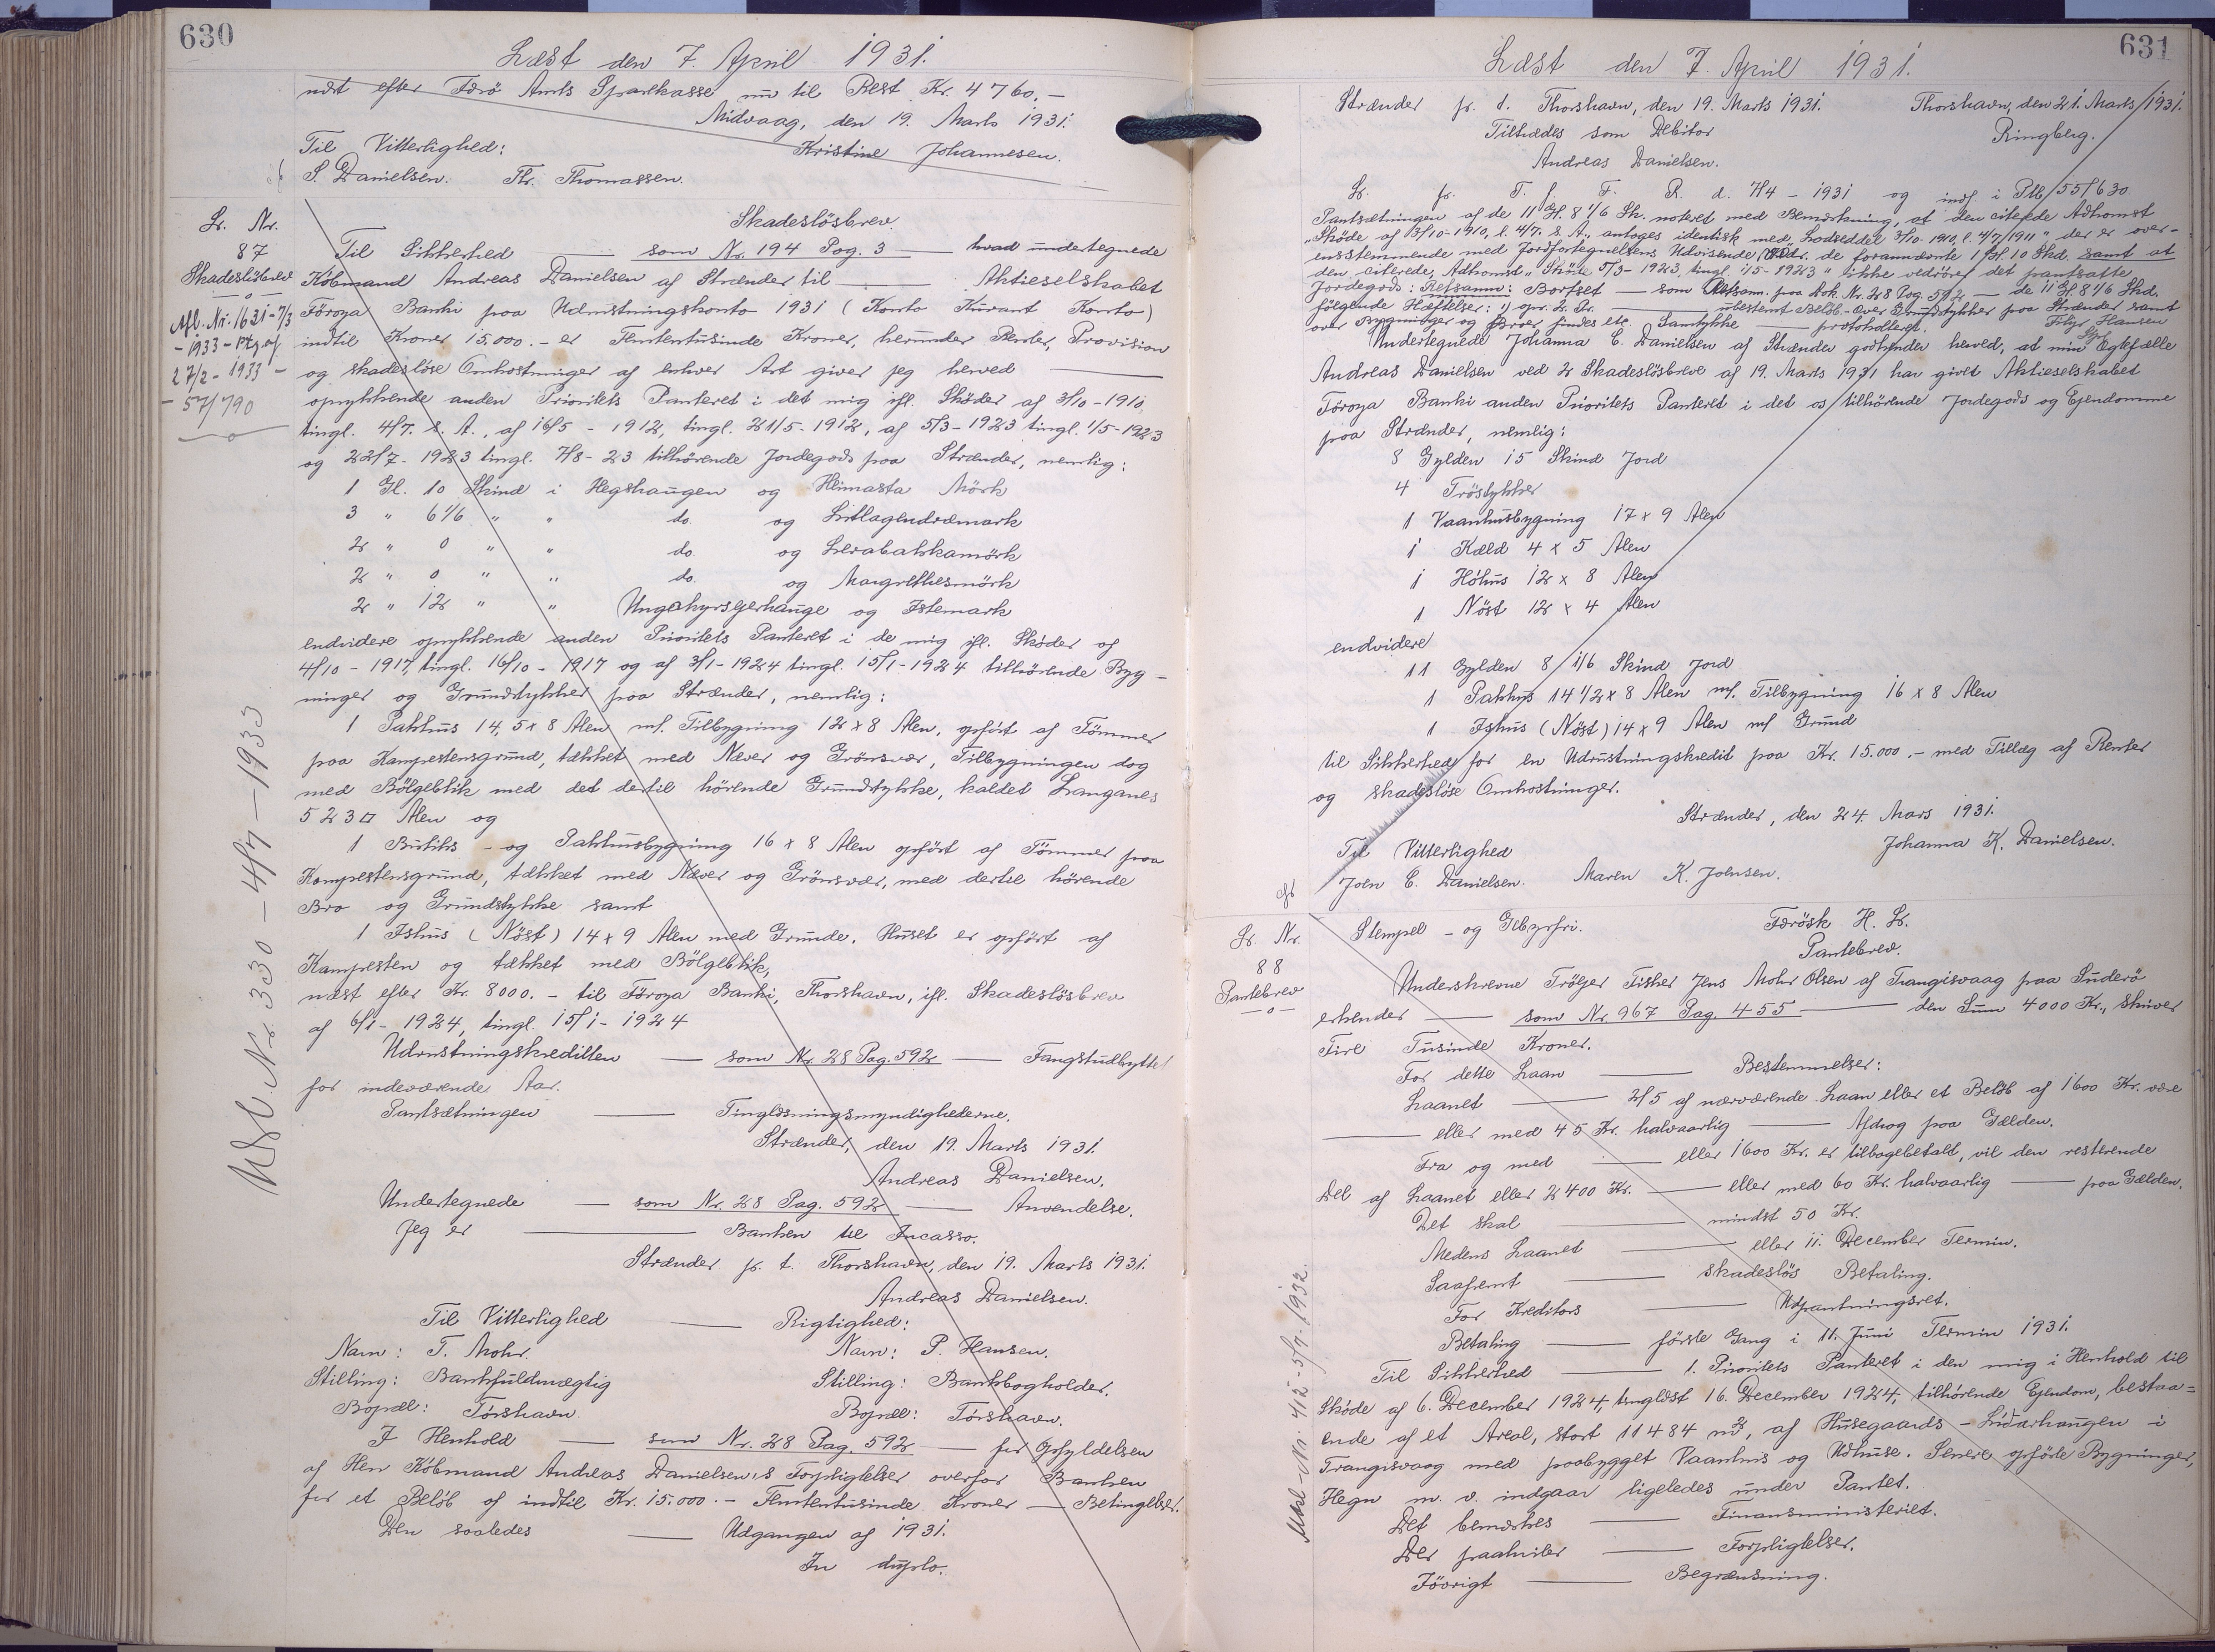 630
Læst den 7. April 1931.
næst efter Færö Amts Sparekasse nu til Rest Kr. 4760.-
Midvaag, den 19. Marts 1931.
Til Vitterlighed: Kristine Johannesen.
S. Danielsen. Th. Thomassen.
Lb. Nr.
87
Skadeslösbrev
Afl. Nr. 1631-7/3
-1933- Ptg af
27/2-1933-
-57/790
Udsl. Nr. 330-4/7-1933
Skadeslösbrev.
Til Sikkerhed — som Nr. 194 Pag. 3 — hvad undertegnede
Köbmand Andreas Danielsen af Strænder til — Aktieselskabet
Föroya Banki paa Udrustningskonto 1931 (Konto Kurant Konto)
indtil Kroner 15.000.- er Femtentusinde Kroner, herunder Renter, Provision
og skadeslöse Omkostninger af enhver Art giver jeg herved —
oprykkende anden Prioritets Panteret i det mig ifl. Sköder af 3/10-1910,
tingl. 4/7. s. A., af 16/5-1912, tingl. 21/5-1912, af 5/3-1923 tingl. 1/5-1923
og 22/7-1923 tingl. 7/8-23 tilhörende Jordegods paa Strænder, nemlig:
1 Gl. 10 Skind i Hegshaugen og Heimasta Mörk
3 " 6 1/6 " " do. og Litlagendræmark
2 " 0 " " do. og Lerabakkamörk
2 " 0 " " do. og Margrethesmörk
2 " 12 " " Ungakyrsgerhauge og Istemark
endvidere oprykkende anden Prioritets Panteret i de mig ifl. Sköder af
4/10-1917, tingl. 16/10-1917 og af 3/1-1924 tingl. 15/1-1924 tilhörende Byg-
ninger og Grundstykker paa Strænder, nemlig:
1 Pakhus 14,5 x 8 Alen m/. Tilbygning 12 x 8 Alen, opfört af Tömmer
paa Kampestensgrund, tækket med Næver og Grönsvær, Tilbygningen dog
med Bölgeblik med det dertil hörende Grundstykke, kaldet Langanes
523 □ Alen og
1 Butiks- og Pakhusbygning 16 x 8 Alen opfört af Tömmer paa
Kampestensgrund, tækket med Næver og Grönsvær, med dertil hörende
Bro og Grundstykke samt
1 Ishus (Nöst) 14 x 9 Alen med Grunde. Huset er opfört af
Kampesten og tækket med Bölgeblik,
næst efter Kr. 8000.- til Föroya Banki, Thorshavn, ifl. Skadeslösbrev
af 6/1-1924, tingl. 15/1-1924
Udrustningskreditten — som Nr. 28 Pag. 592 — Fangstudbyttet
for indeværende Aar.
Pantsætningen — Tinglæsningsmyndighederne.
Strænder, den 19. Marts 1931.
Andreas Danielsen.
Undertegnede — som Nr. 28 Pag. 592 — Anvendelse.
Jeg er — Banken til Incasso.
Strænder p. t. Thorshavn, den 19. Marts 1931.
Andreas Danielsen.
Til Vitterlighed — Rigtighed:
Navn: T. Mohr. Navn: P. Hansen.
Stilling: Bankfuldmægtig Stilling: Bankbogholder.
Bopæl: Törshavn. Bopæl: Törshavn.
I Henhold — som Nr. 28 Pag. 592 — for Opfyldelsen
af Herr Köbmand Andreas Danielsen's Forpligtelser overfor Banken
for et Belöb af indtil Kr. 15.000.- Femtentusinde Kroner — Betingelser.
Den saaledes — Udgangen af 1931.
In duplo.
631
Læst den 7. April 1931.
Strænder p. t. Thorshavn, den 19. Marts 1931. Thorshavn, den 21. Marts 1931.
Tiltrædes som Debitor Ringberg.
Andreas Danielsen.
L. p. T. f. F. R. d. 7/4-1931 og indf i Ptb. 55/630
Pantsætningen af de 11 Gl. 8 1/6 Sk. noteret med Bemærkning, at den citerede Adkomst
"Sköde af 3/10-1910, l. 4/7. s. A." antages identisk med "Lodseddel 3/10-1910, l. 4/7/1911" der er over-
ensstemmende med Jordfortegnelsens Udvisende (Vedr. de forannævnte 1 Gl. 10 Skd. samt at
den citerede Adkomst "Sköde 5/3-1923, tingl. 1/5-1923" ikke vedrörer det pantsatte
Jordegods: Retsanm: Bortset — som Retsanm. paa Dok. Nr. 28 Pag. 592 — de 11 Gl 8 1/6 Skd.
fölgende Hæftelser: 1) opr. 2. Pr. — ubestemt Belöb - Over Grundstykker paa Strænder samt
over Bygninger og Broer findes etc. Samtykke — protokolleret. Filip Hansen
Undertegnede Johanna C. Danielsen af Strænder godkender herved, at min Ægtefælle
Andreas Danielsen ved 2 Skadeslösbreve af 19. Marts 1931 har givet Aktieselskabet
Föroya Banki anden Prioritets Panteret i det os tilhörende Jordegods og Ejendomme
paa Strænder, nemlig:
8 Gylden 15 Skind Jord
4 Tröstykker
1 Vaanhusbygning 17 x 9 Alen
1 Kæld 4 x 5 Alen
1 Höhus 12 x 8 Alen
1 Nöst 12 x 4 Alen
endvidere
11 Gylden 8 1/6 Skind Jord
1 Pakhus 14 1/2 x 8 Alen m/. Tilbygning 16 x 8 Alen
1 Ishus (Nöst) 14 x 9 Alen m/ Grund
til Sikkerhed for en Udrustningskredit paa Kr. 15.000.- med Tillæg af Renter
og skadeslöse Omkostninger.
Strænder, den 24. Mars 1931.
Til Vitterlighed Johanna K. Danielsen.
Joen C. Danielsen. Maren K. Joensen.
Lb. Nr.
88
Pantebrev
Udsl. Nr. 412-5/7-1932.
Stempel- og Gebyrfri. Færösk H. L.
Pantebrev.
Underskrevne Trölger Fisker Jens Mohr Olsen af Trangisvaag paa Suderö
erkender — som Nr. 967 Pag. 455 — den Sum 4000 Kr., skriver
Fire Tusinde Kroner.
For dette Laan — Bestemmelser:
Laanet — 2/5 af nærværende Laan eller et Belöb af 1600 Kr. være
— eller med 45 Kr. halvaarlig — Afdrag paa Gælden.
Fra og med — eller 1600 Kr. er tilbagebetalt, vil den resterende
Del af Laanet eller 2400 Kr. — eller med 60 Kr. halvaarlig — paa Gælden.
Det skal — mindst 50 Kr.
Medens Laanet — eller 11. December Termin.
Saafremt — skadeslös Betaling.
For Kreditors — Udpantningsret.
Betaling — förste Gang i 11. Juni Termin 1931.
Til Sikkerhed — 1. Prioritets Panteret i den mig i Henhold til
Sköde af 6. December 1924, tinglæst 16. December 1924, tilhörende Ejendom, bestaa=
ende af et Areal, stort 11484 m², af Husegaards - Lidarhaugen i
Trangisvaag med paabygget Vaanhus og Udhuse. Senere opförte Bygninger,
Hegn m. v. indgaar ligeledes under Pantet.
Det bemærkes — Finansministeriet.
Der paahviler — Forpligtelser.
Iövrigt — Begrænsning.